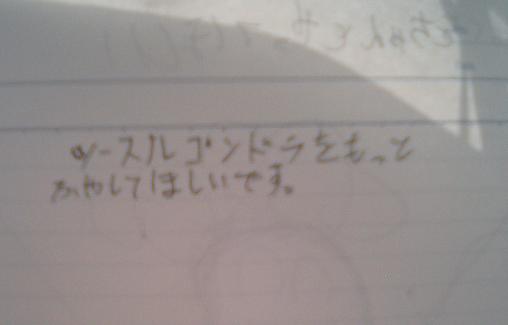 ゾースルゴンドラをもっと
ふやしてほしいです。